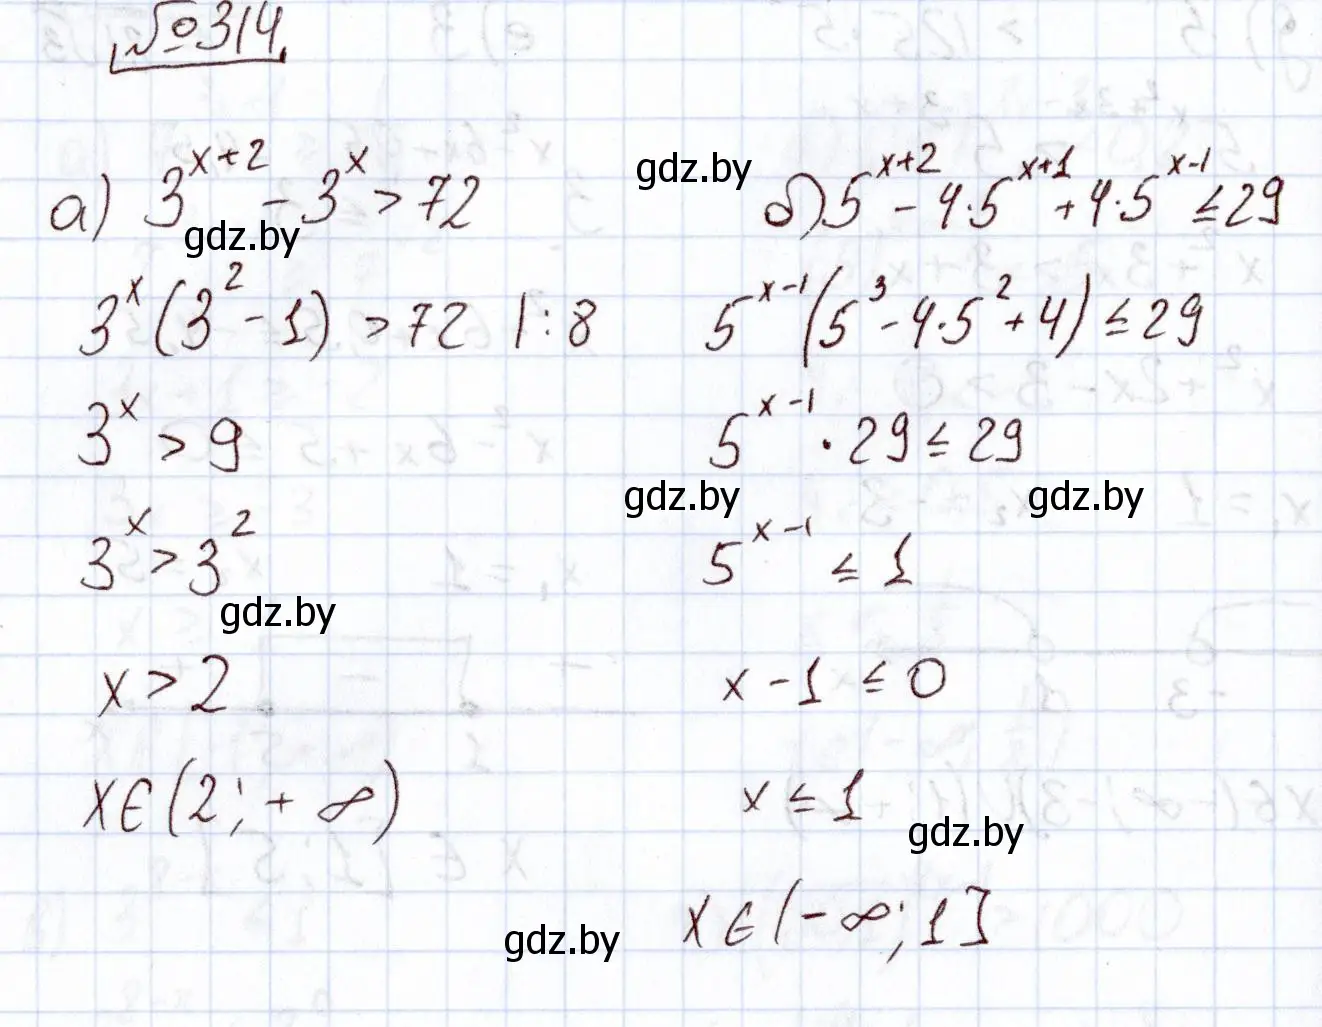 №314
а) 3^{x+2} - 3^x > 72
3^x (3^2 - 1) > 72 |:8
3^x > 9
3^x > 3^2
x > 2
x ∈ (2; +∞)
б) 5^{x+2} - 4·5^{x+1} + 4·5^{x-1} ≤ 29
5^{x-1} (5^3 - 4·5^2 + 4) ≤ 29
5^{x-1} · 29 ≤ 29
5^{x-1} ≤ 1
x - 1 ≤ 0
x ≤ 1
x ∈ (-∞; 1]
gdz.by
gdz.by
gdz.by
gdz.by
gdz.by
gdz.by
gdz.by